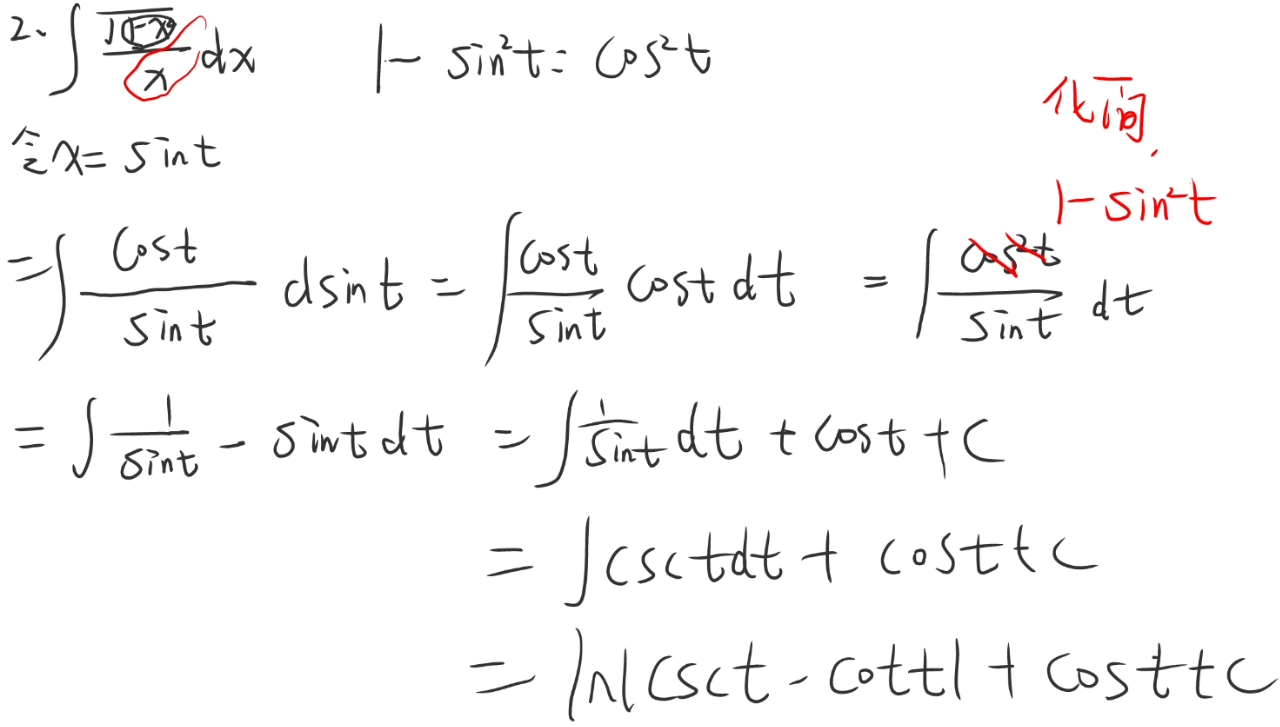 2、∫ √(1-x²)/x dx 1 - sin²t = cos²t
令x = sint
化简
1 - sin²t
= ∫ cost/sint dsint = ∫ cost/sint cost dt = ∫ cos²t/sint dt
= ∫ 1/sint - sint dt = ∫ 1/sint dt + cost + C
= ∫ csctdt + cost + C
= ln|csct - cott| + cost + C